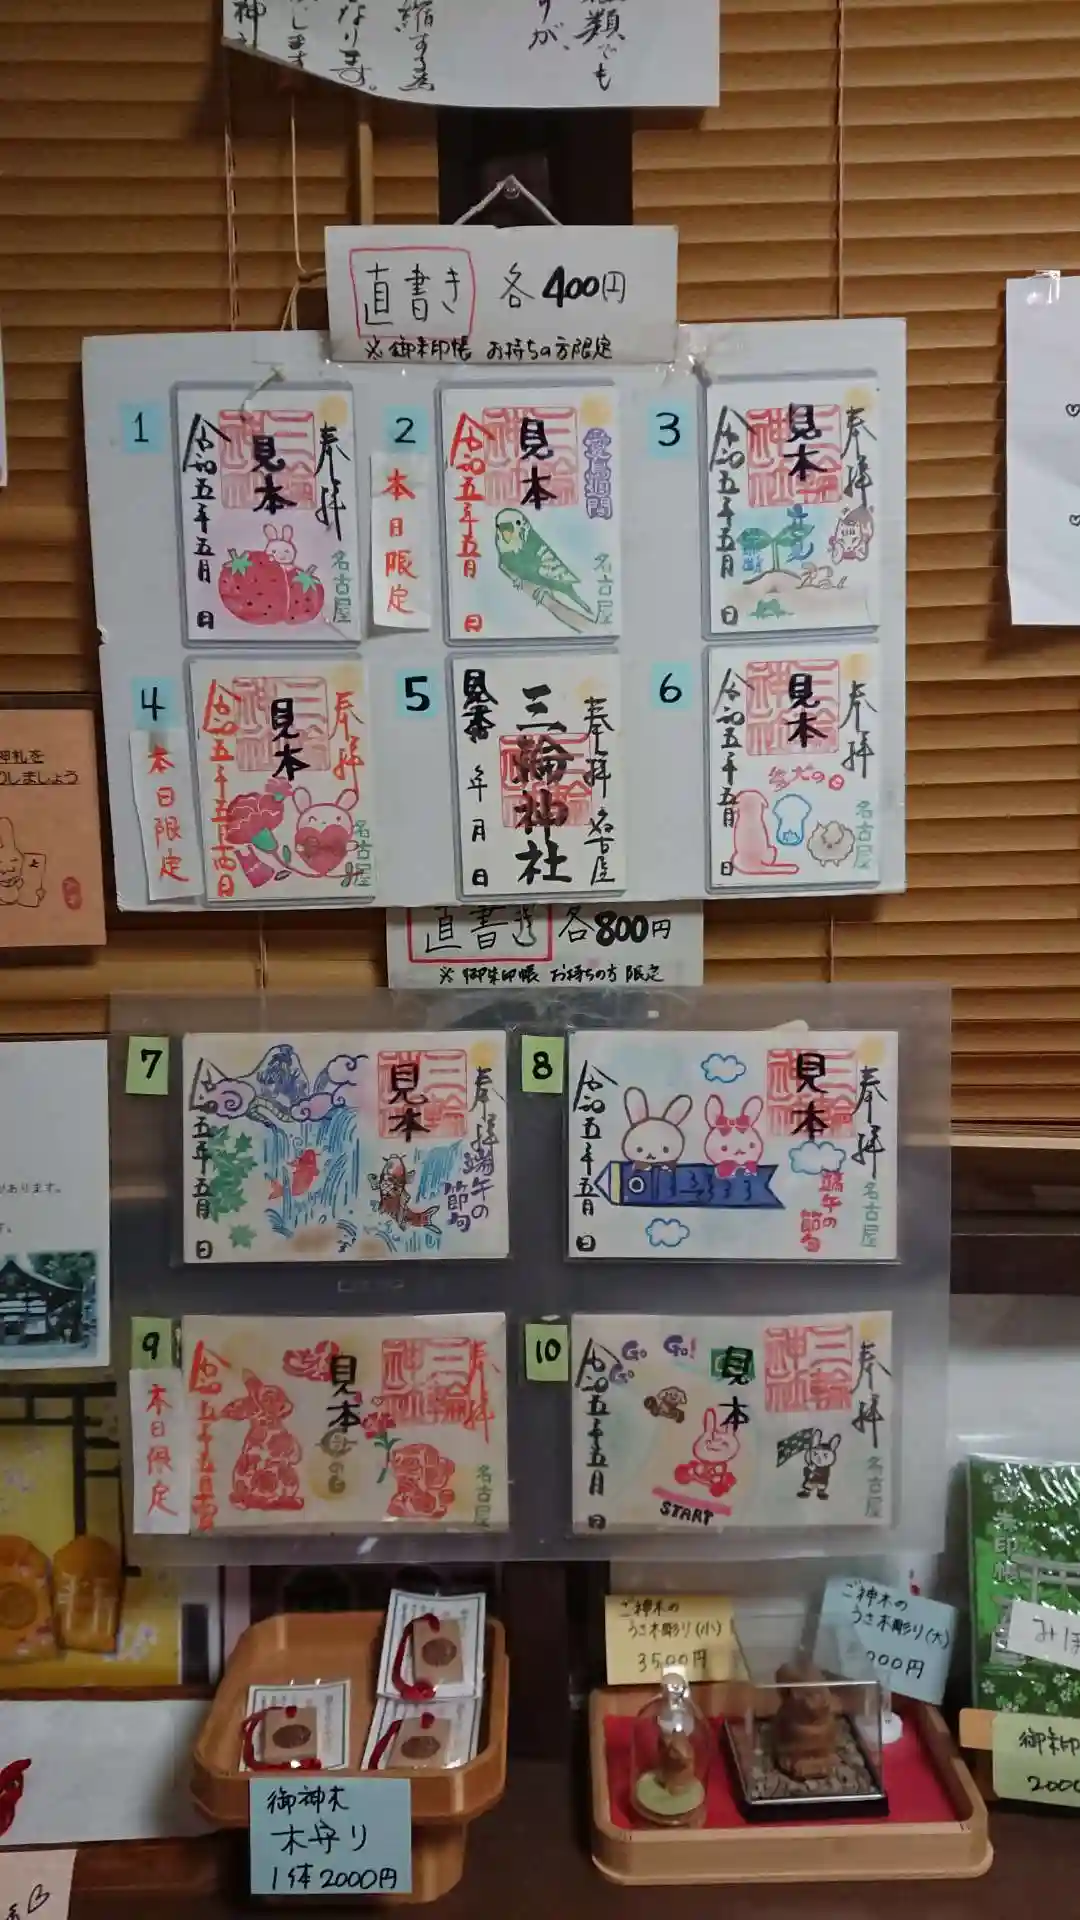 類でも
すが、
縮する
なります。
します
神社
直書き 各400円
※御朱印帳 お持ちの方限定
1
奉拝
三輪神社
見本
令和五年五月 日
名古屋
2
本日限定
愛鳥週間
三輪神社
見本
令和五年五月 日
名古屋
3
奉拝
三輪神社
見本
令和五年五月 日
4
本日限定
奉拝
三輪神社
見本
令和五年五月十四日
名古屋
5
奉拝 名古屋
三輪神社
見本
年 月 日
6
奉拝
三輪神社
見本
愛犬の日
令和五年五月 日
名古屋
直書き 各800円
※御朱印帳 お持ちの方限定
7
奉拝
端午の
節句
三輪神社
見本
令和五年五月 日
8
奉拝
三輪神社
見本
端午の
節句
令和五年五月 日
名古屋
9
本日限定
奉拝
三輪神社
見本
母の日
名古屋
10
奉拝
三輪神社
見本
Go Go Go!
START
令和五年五月 日
名古屋
神札を
りしましょう
があります。
す。
御神木
木守り
1体2000円
ご神木の
うさ木彫り(小)
3500円
ご神木の
うさ木彫り(大)
000円
朱印帳
みほ
御朱印
2000